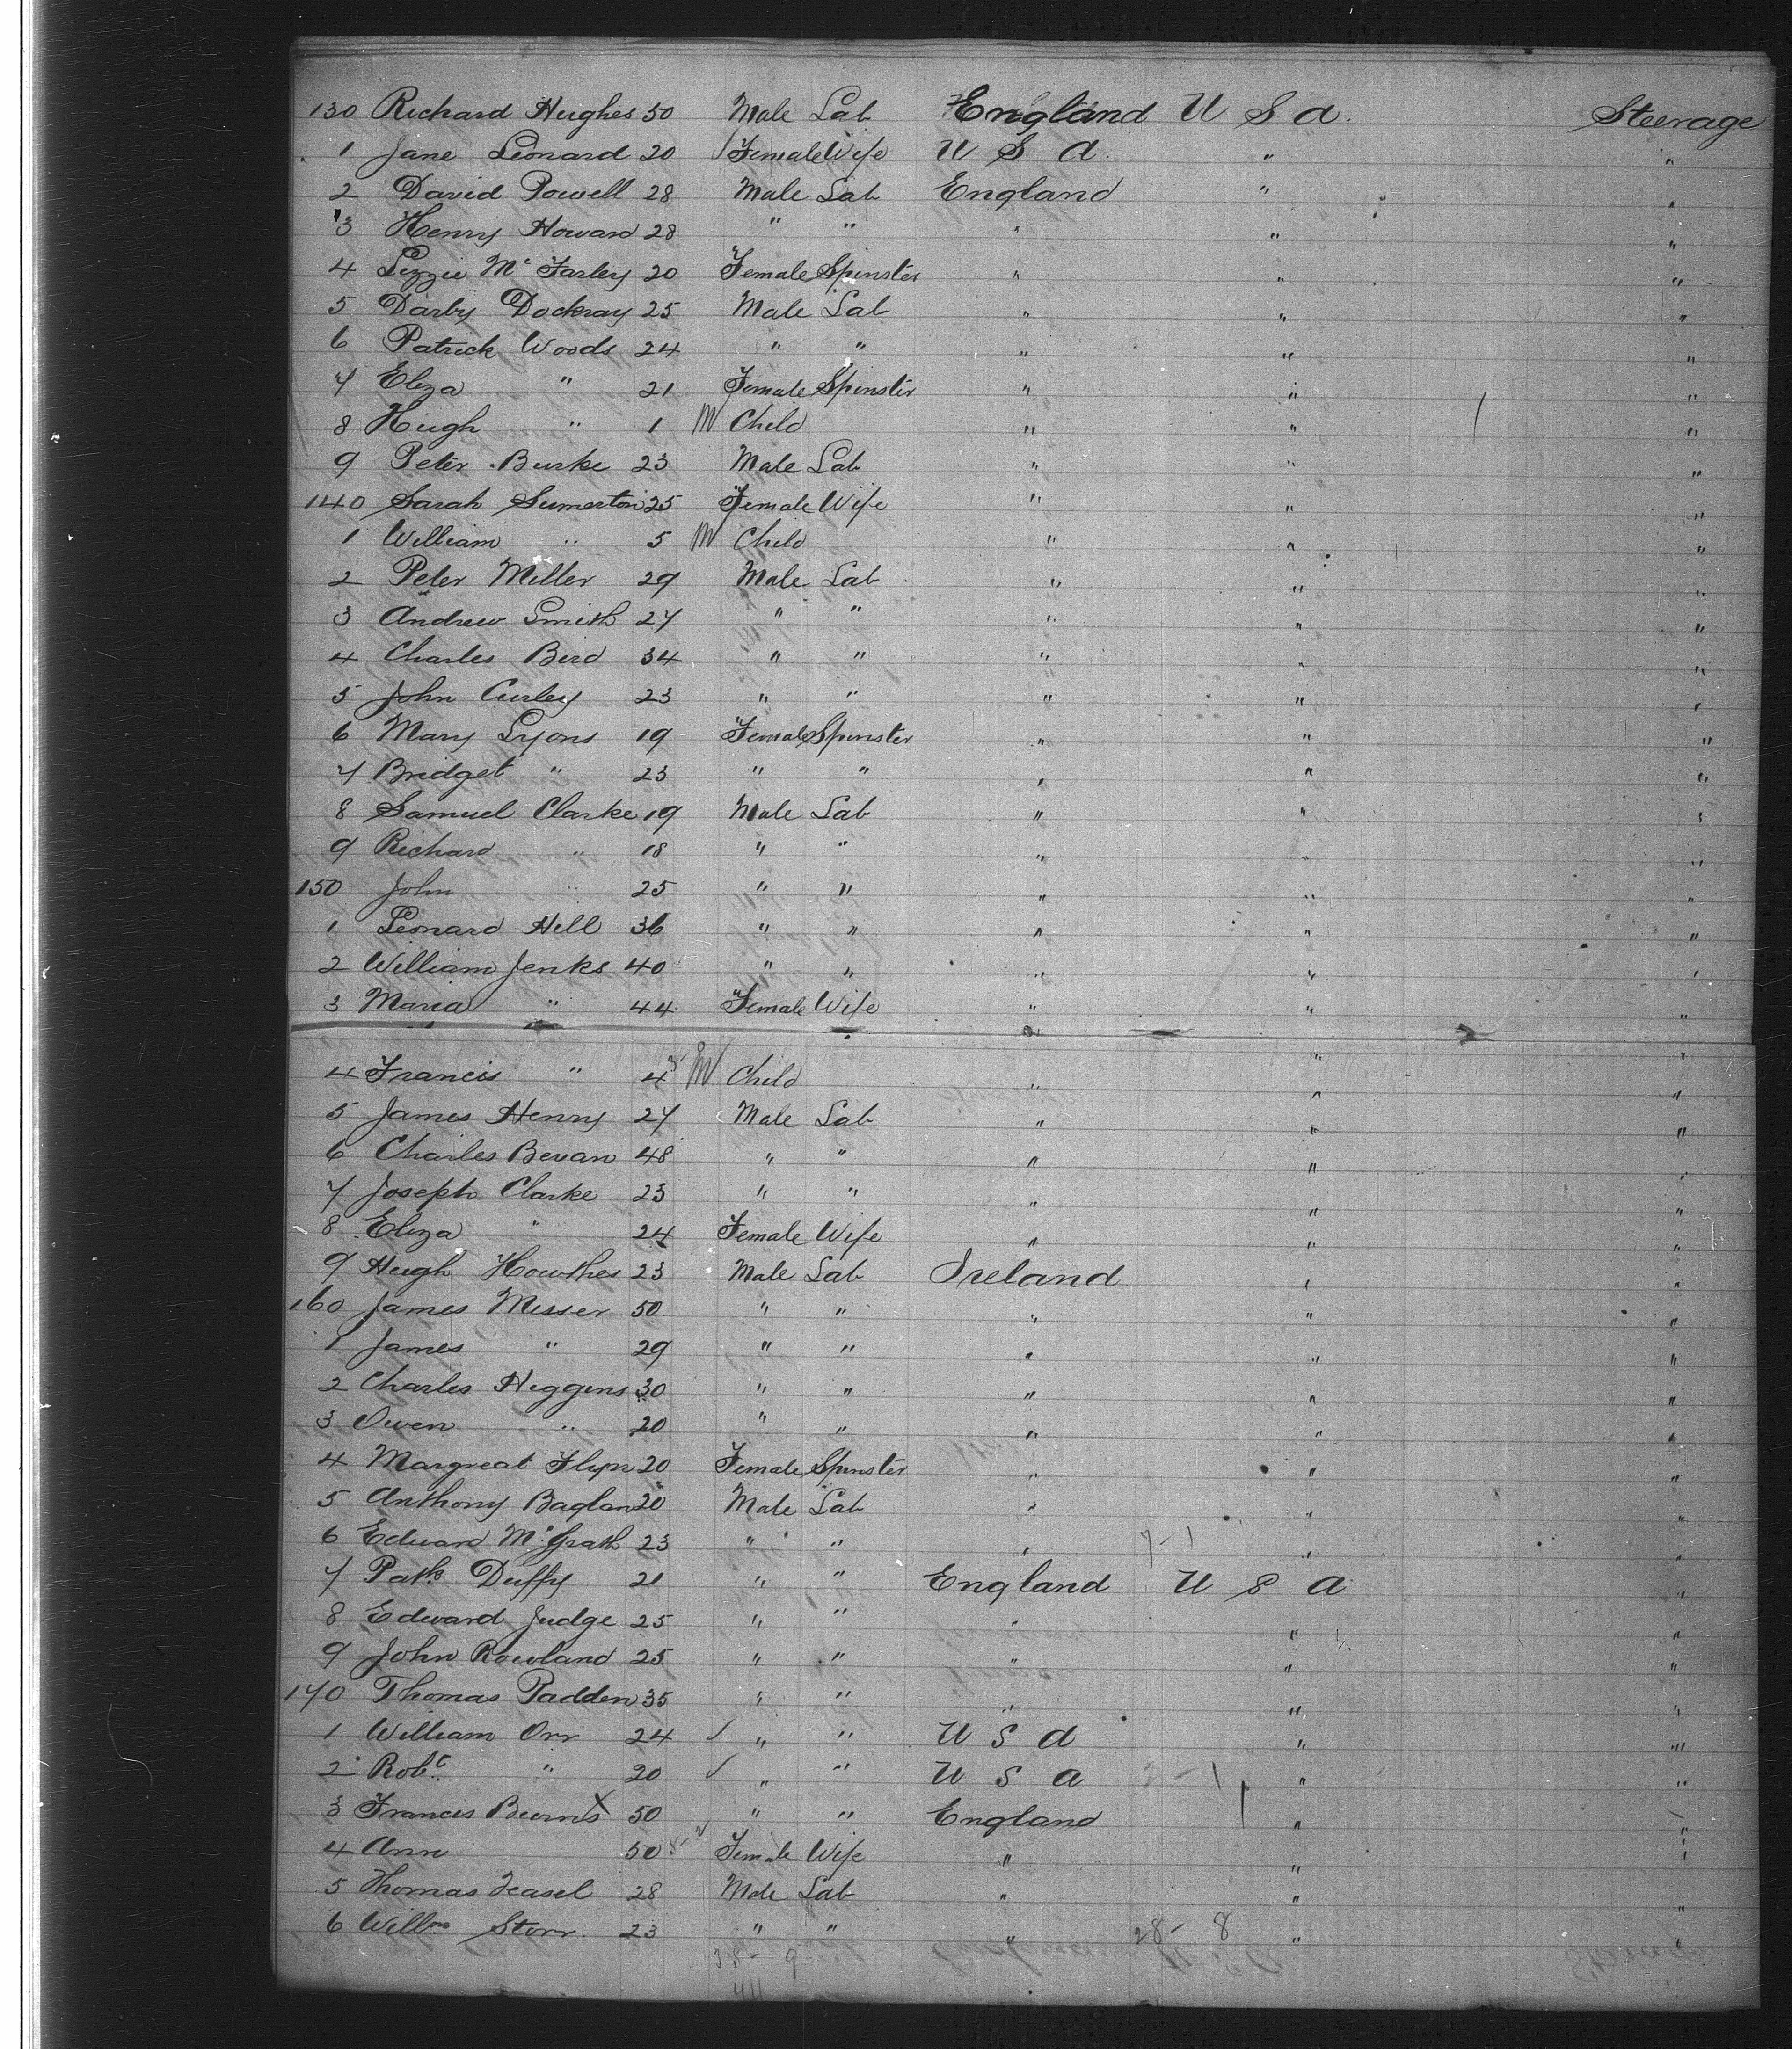 130 Richard Hughes 50 Male Lab England U S A. Steerage
1 Jane Leonard 20 Female Wife U S A. " "
2 David Powell 28 Male Lab England " "
3 Henry Howard 28 " " " " "
4 Lizzie Mc Farley 20 Female Spinster " " "
5 Darby Dockray 25 Male Lab " " "
6 Patrick Woods 24 " " " " "
7 Eliza " 21 Female Spinster " " "
8 Hugh " 1 M Child " " "
9 Peter Burke 23 Male Lab " " "
140 Sarah Sumerton 25 Female Wife " " "
1 William " 5 M Child " " "
2 Peter Miller 29 Male Lab " " "
3 Andrew Smith 27 " " " " "
4 Charles Bird 34 " " " " "
5 John Curley 23 " " " " "
6 Mary Lyons 19 Female Spinster " " "
7 Bridget " 23 " " " " "
8 Samuel Clarke 19 Male Lab " " "
9 Richard " 18 " " " " "
150 John " 25 " " " " "
1 Leonard Hill 36 " " " " "
2 William Jenks 40 " " " " "
3 Maria " 44 Female Wife " " "
4 Francis " 4 M Child " " "
5 James Henry 27 Male Lab " " "
6 Charles Bevan 48 " " " " "
7 Joseph Clarke 23 " " " " "
8 Eliza " 24 Female Wife " " "
9 Hugh Howthes 23 Male Lab Ireland " "
160 James Messer 50 " " " " "
1 James " 29 " " " " "
2 Charles Higgins 30 " " " " "
3 Owen " 20 " " " " "
4 Margreat Flyn 20 Female Spinster " " "
5 Anthony Baglan 20 Male Lab " " "
6 Edward Mc Grath 23 " " " 7-1 " "
7 Patk Duffy 21 " " England U S A "
8 Edward Judge 25 " " " " "
9 John Rowland 25 " " " " "
170 Thomas Padden 35 " " " " "
1 William Orr 24 " " U S A " "
2 Robt " 20 " " U S A 2-1 " "
3 Francis Burns X 50 " " England " "
4 Ann 50 Female Wife " " "
5 Thomas Teasel 28 Male Lab " " "
6 Willm Storr 23 " " " 28-8 " "
33-9